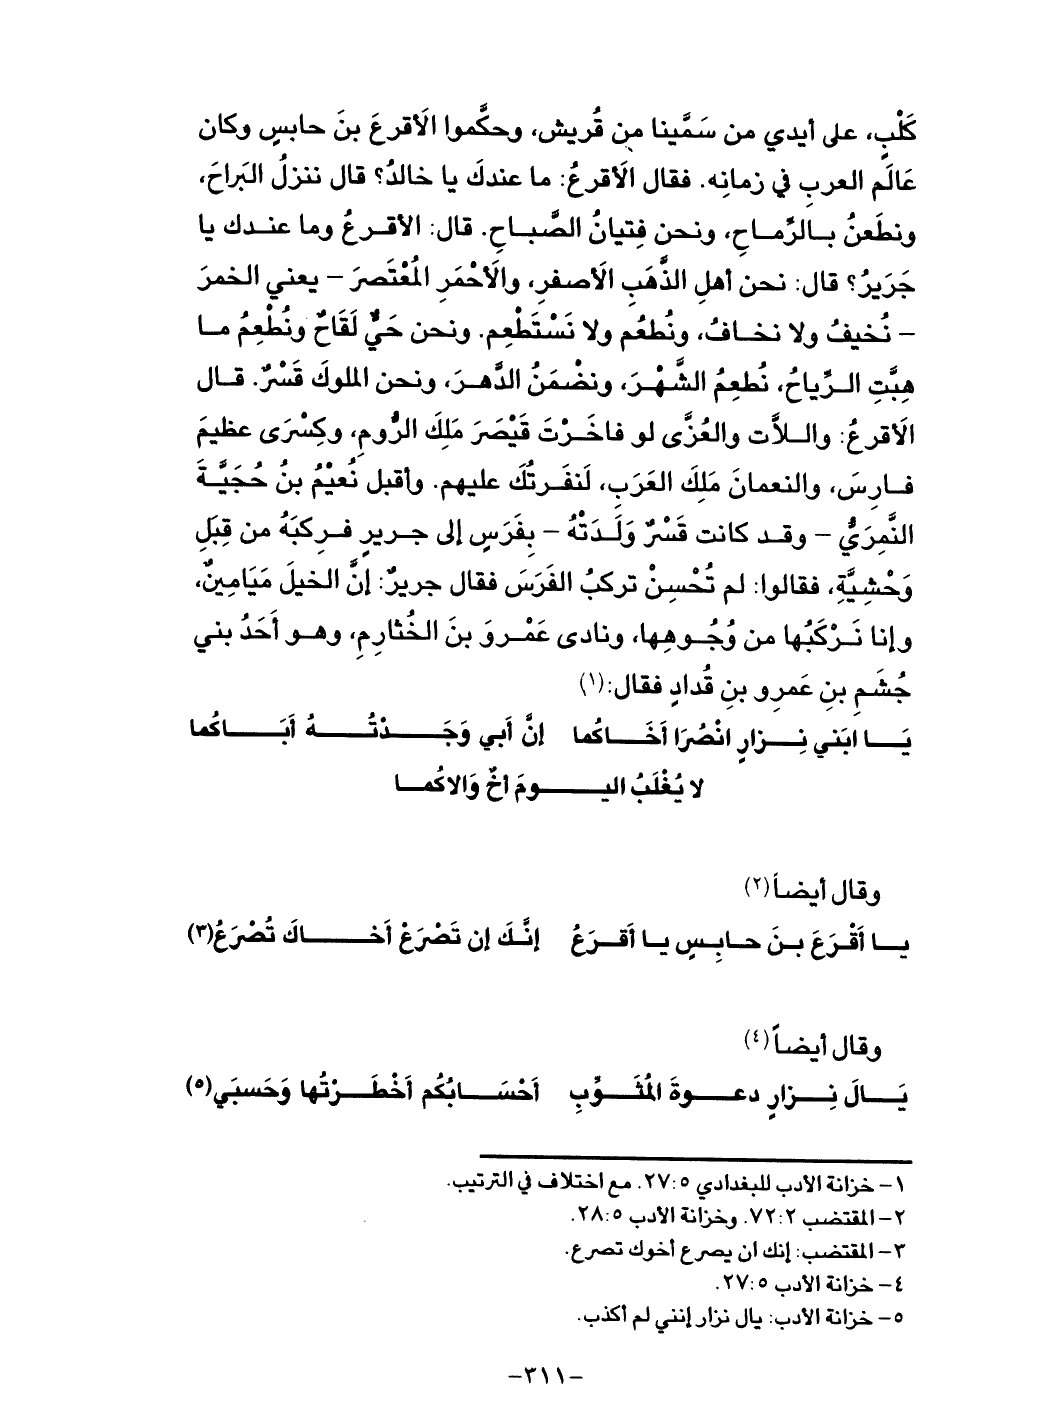 كَلْبٍ، على أيدي من سَمَّينا مِن قُريش، وحكَّموا الَأقرعَ بنَ حابسٍ وكان
عَالَم العربِ في زمانِه. فقال الَأقرعُ: ما عندكَ يا خالدُ؟ قال ننزلُ البَراحَ،
ونطَعنُ بـالرِّمـاحِ، ونحن فِتيانُ الصَّبـاحِ. قال: الأقـرعُ وما عنـدك يا
جَرَيرُ؟ قال: نحن أهلِ الذَّهَبِ الَأصفرِ، والَأحْمَرِ المُعْتَصرَ – يعني الخمرَ
– نُخيفُ ولا نخـافُ، ونُطعُم ولا نَسْتَطْعِم. ونحن حَيٌّ لَقَاحٌ ونُطْعِمُ مـا
هِبَّتِ الـرِّياحُ، نُطعِمُ الشَّهْـرَ، ونضْمَنُ الدَّهـرَ، ونحن الملوكَ قَسْرٌ. قـال
الَأقرعُ: والـلاَّت والعُزَّى لو فاخَـرْتَ قَيْصَرَ مَلِكَ الرُّومِ، وكِسْرَى عظيمَ
فـارسَ، والنعمانَ مَلِكَ العَرَبِ، لَنفَـرتُكَ عليهم. وأقبل نُعَيْمُ بنُ حُجَيَّـةَ
النَّمِرَيُّ – وقـد كانت قَسْرٌ وَلَـدَتْهُ – بِفَرَسٍ إلى جـريرٍ فـركبَهُ من قِبَلِ
وَحْشِيَّةِ، فقالوا: لم تُحْسِنْ تركبُ الفَرَسَ فقال جريرٌ: إنَّ الخيلَ مَيَامِينٌ،
وإنا نَـرْكَبُها من وُجُـوهِها، ونادى عَمْـروَ بنَ الخُثارِمِ، وهـو أحَدُ بني
جُشَمِ بنِ عَمرِو بنِ قُدادٍ فقال:(١)
يَـــا ابَني نِـــزارٍ انْصُرَا أخَـــاكُما إنَّ أبي وَجَـــدْتُـــهُ أبَـــاكُما
لا يُغْلَبُ اليـــومَ أخٌ وَالاكُمـا
وقال أيضاً(٢)
يــا أقْـرَعَ بـنَ حـابـسٍ يـا أقـرَعُ إنَّـكَ إن تَصْرَعْ أخـــاكَ تُصْرَعُ(٣)
وقال أيضاً(٤)
يَـــالَ نِـــزارٍ دعـــوةَ المُثَـــوِّبِ أحْسَـــابُكُم أخْطَـــرْتُها وَحَسبَي(٥)
١– خزانة الأدب للبغدادي ٥: ٢٧. مع اختلاف في الترتيب.
٢– المقتضب ٢: ٧٢. وخزانة الأدب ٥: ٢٨.
٣– المقتضب: إنك ان يصرع أخوك تصرع.
٤– خزانة الأدب ٥: ٢٧.
٥– خزانة الأدب: يال نزار إنني لم أكذب.
–٣١١–